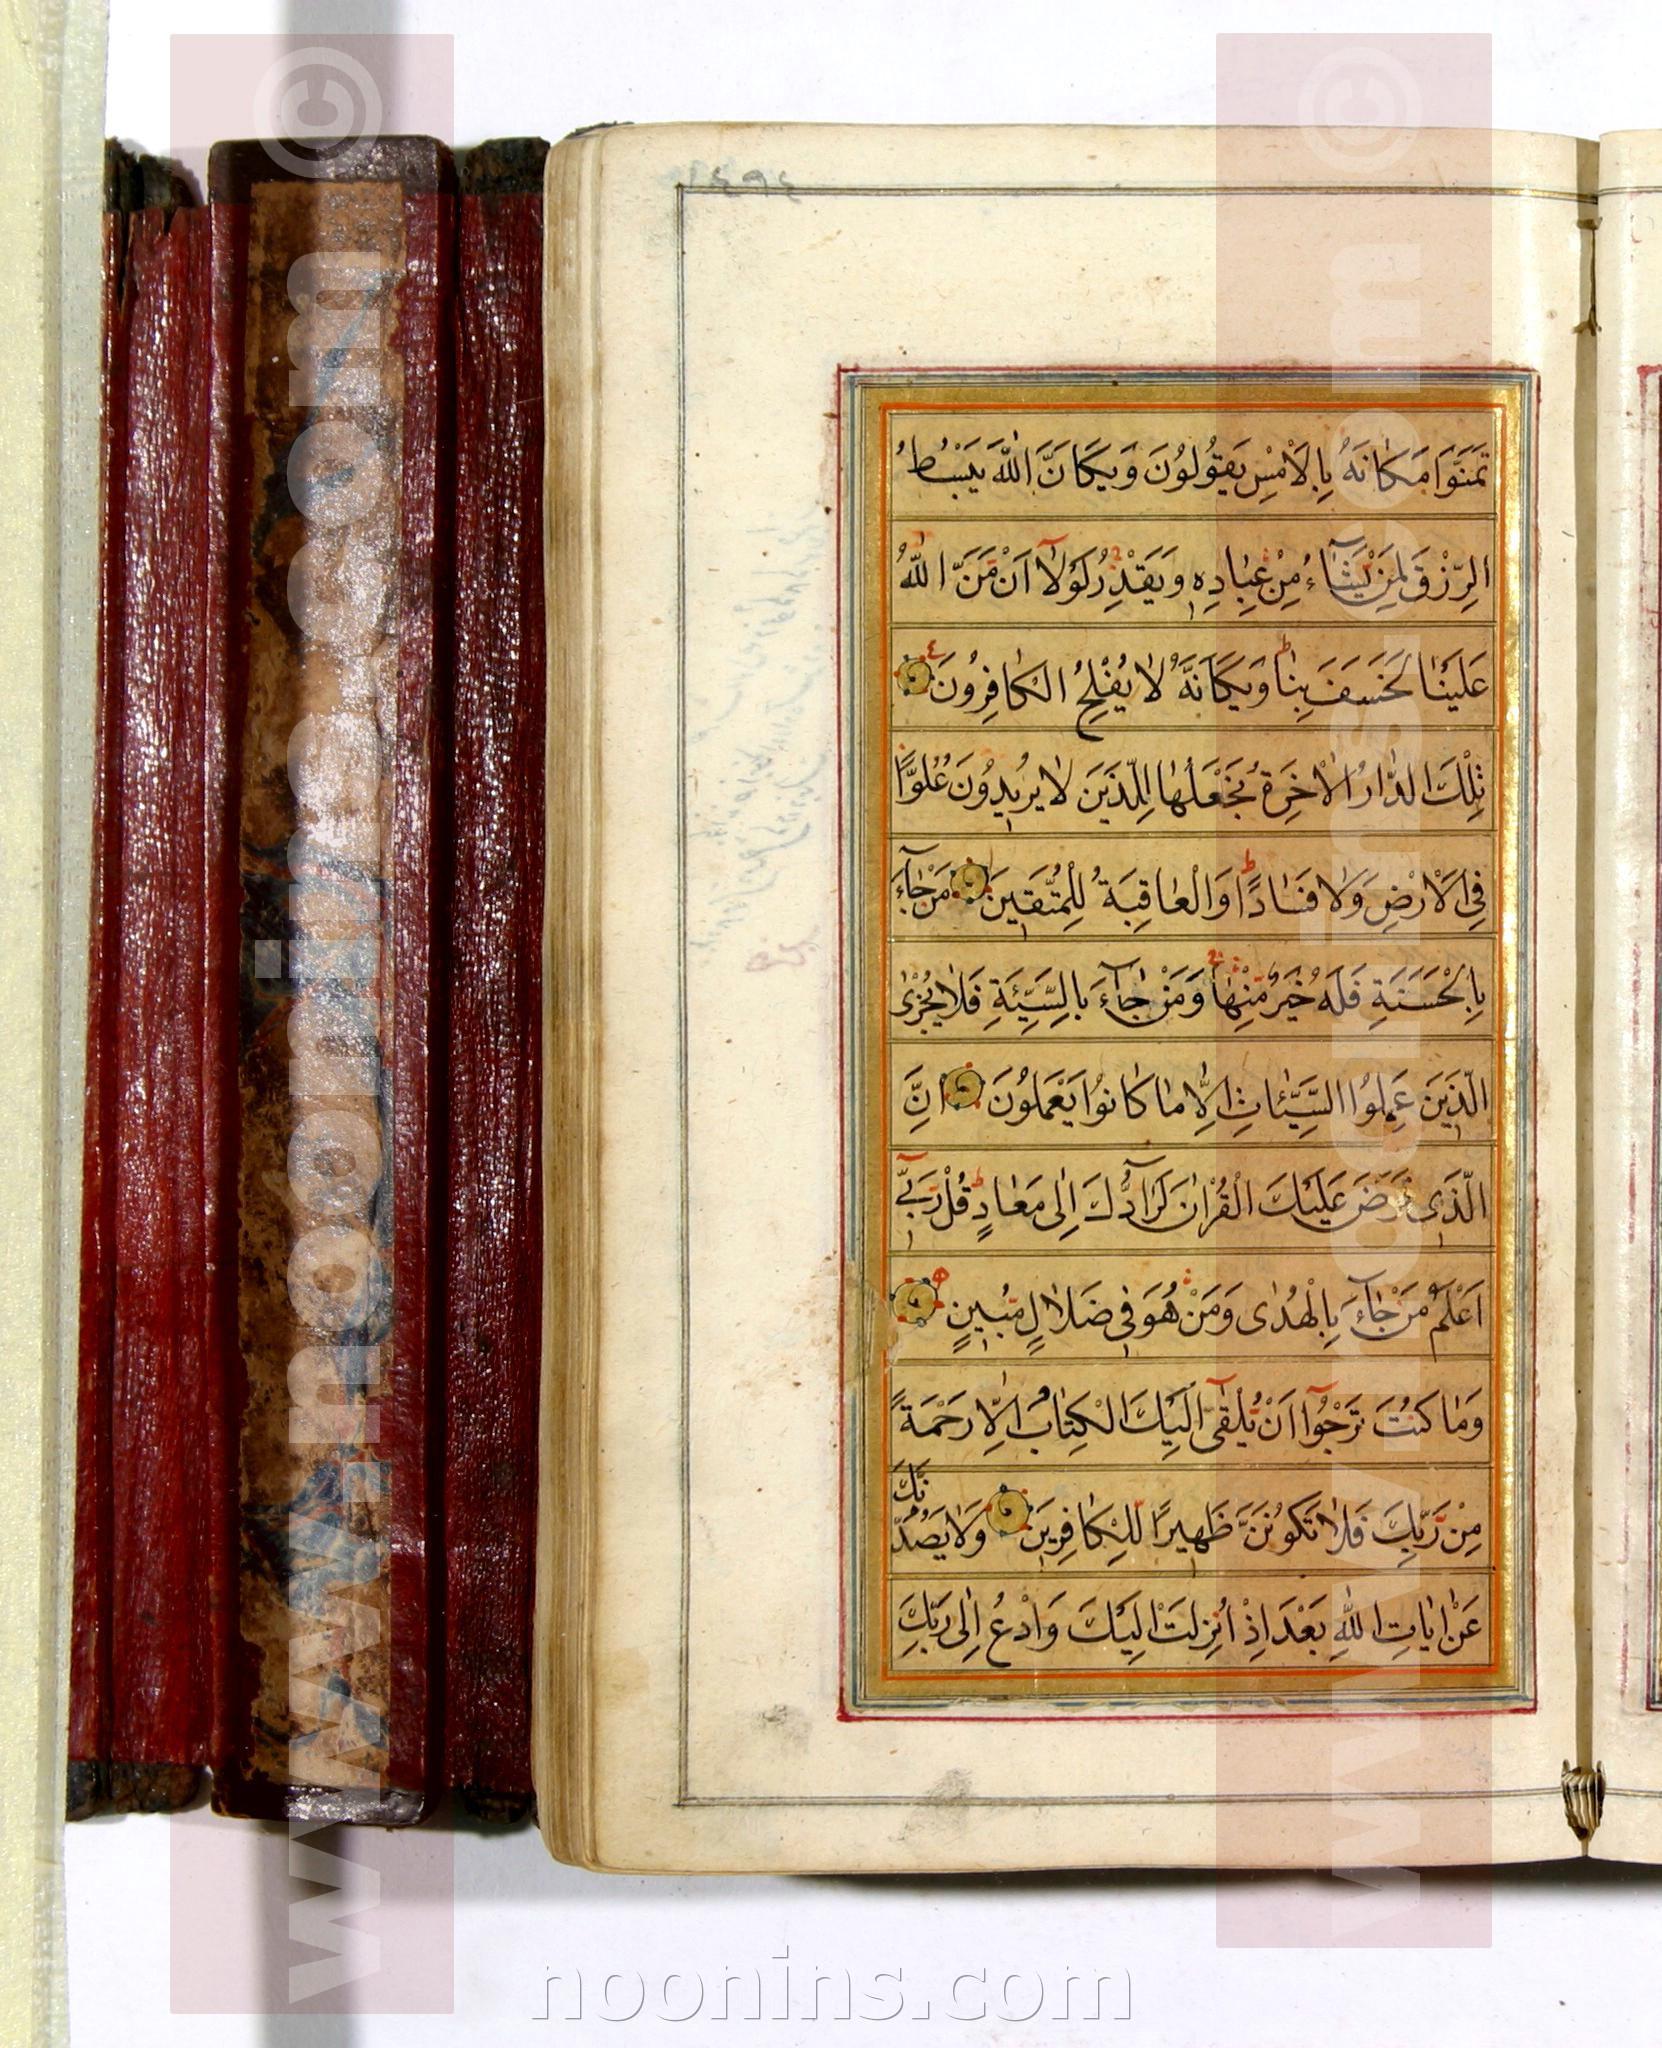 تَمَنَّوْا مَكَانَهُ بِالْاَمْسِ يَقُولُونَ وَيْكَاَنَّ اللّٰهَ يَبْسُطُ
الرِّزْقَ لِمَنْ يَّشَآءُ مِنْ عِبَادِهٖ وَيَقْدِرُ لَوْلَآ اَنْ مَّنَّ اللّٰهُ
عَلَيْنَا لَخَسَفَ بِنَا وَيْكَاَنَّهُ لَا يُفْلِحُ الْكَافِرُونَ
تِلْكَ الدَّارُ الْاٰخِرَةُ نَجْعَلُهَا لِلَّذِينَ لَا يُرِيدُونَ عُلُوًّا
فِي الْاَرْضِ وَلَا فَسَادًا وَالْعَاقِبَةُ لِلْمُتَّقِينَ مَنْ جَآءَ
بِالْحَسَنَةِ فَلَهُ خَيْرٌ مِّنْهَا وَمَنْ جَآءَ بِالسَّيِّئَةِ فَلَا يُجْزَى
الَّذِينَ عَمِلُوا السَّيِّئَاتِ اِلَّا مَا كَانُوا يَعْمَلُونَ اِنَّ
الَّذِى فَرَضَ عَلَيْكَ الْقُرْاٰنَ لَرَآدُّكَ اِلٰى مَعَادٍ قُلْ رَبِّىٓ
اَعْلَمُ مَنْ جَآءَ بِالْهُدٰى وَمَنْ هُوَ فِى ضَلَالٍ مُّبِينٍ
وَمَا كُنْتَ تَرْجُوٓا اَنْ يُّلْقٰىٓ اِلَيْكَ الْكِتَابُ اِلَّا رَحْمَةً
مِنْ رَّبِّكَ فَلَا تَكُونَنَّ ظَهِيرًا لِّلْكَافِرِينَ وَلَا يَصُدُّنَّكَ
عَنْ اٰيَاتِ اللّٰهِ بَعْدَ اِذْ اُنْزِلَتْ اِلَيْكَ وَادْعُ اِلٰى رَبِّكَ
www.noonins.com ©
www.noonins.com ©
noonins.com